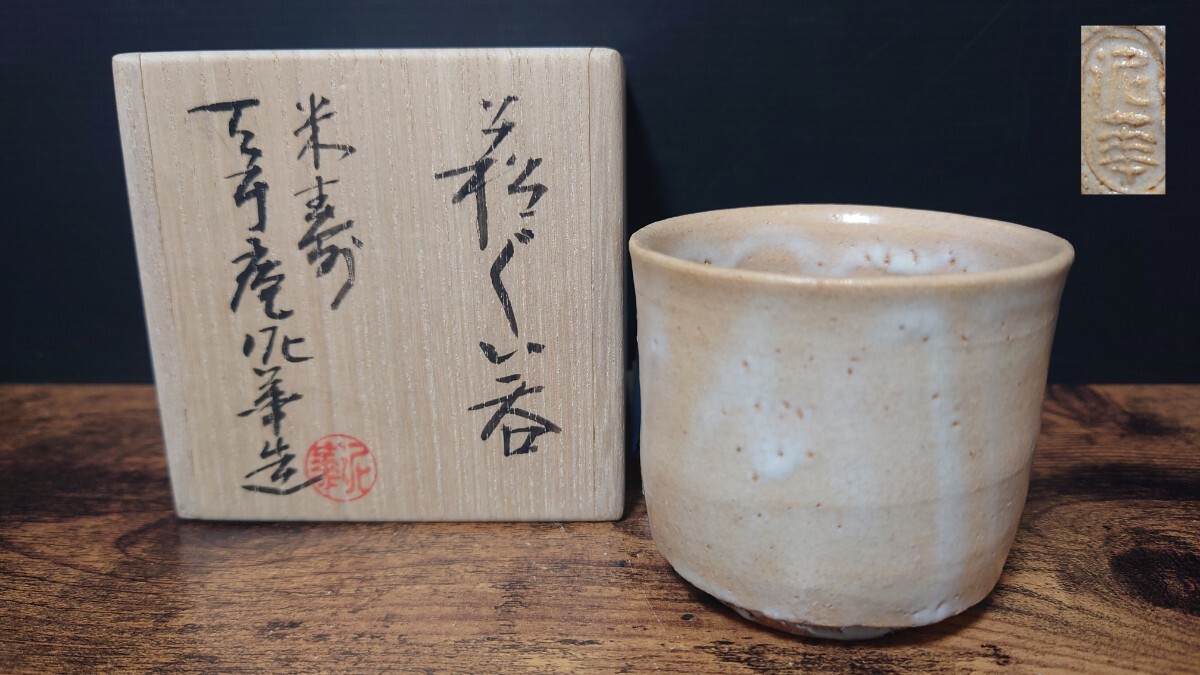 萩ぐい呑
米寿
庵泥華造
泥華
泥華